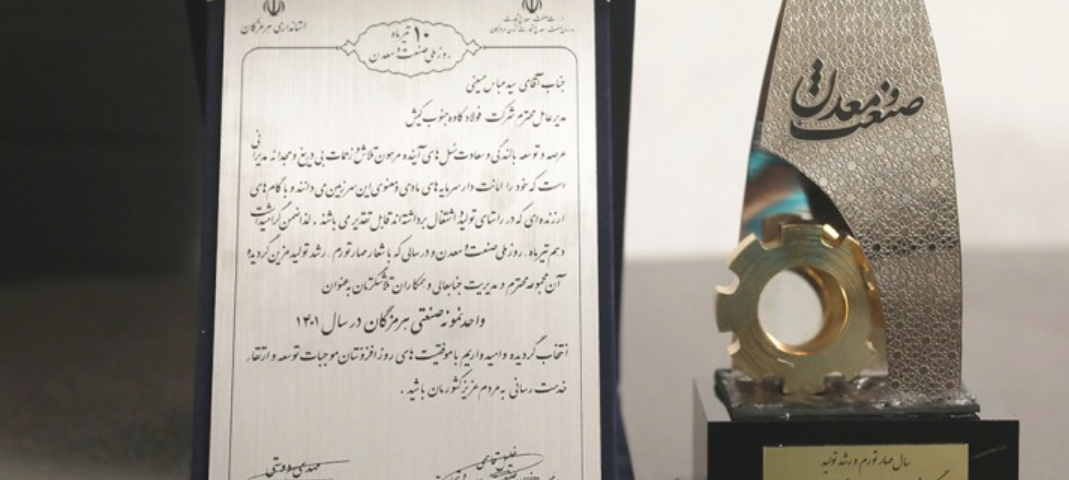 استانداری هرمزگان
وزارت صنعت، معدن و تجارت
۱۰ تیرماه
روز ملی صنعت و معدن
جناب آقای سید عباس حسینی
مدیر عامل محترم شرکت فولاد کاوه جنوب کیش
عرصه و توسعه بالندگی و سعادت نسل های آینده مرهون تلاش و زحمات بی دریغ و مجدانه مدیرانی
است که خود را امانت دار سرمایه های مادی و معنوی این سرزمین می دانند و با گام های
ارزنده ای که در راستای تولید و اشتغال برداشته اند قابل تقدیر می باشند . لذا ضمن گرامیداشت
دهم تیرماه ، روز ملی صنعت و معدن و در سالی که با شعار مهار تورم ، رشد تولید مزین گردیده
آن مجموعه محترم و مدیریت جنابعالی و همکاران تلاشگرتان به عنوان
واحد نمونه صنعتی هرمزگان در سال ۱۴۰۱
انتخاب گردیده و امید واریم با موفقیت های روز افزونتان موجبات توسعه و ارتقاء
خدمت رسانی به مردم عزیز کشورمان باشید .
مهدی دوستی
خلیل قاسمی
صنعت و معدن
سال مهار تورم و رشد تولید